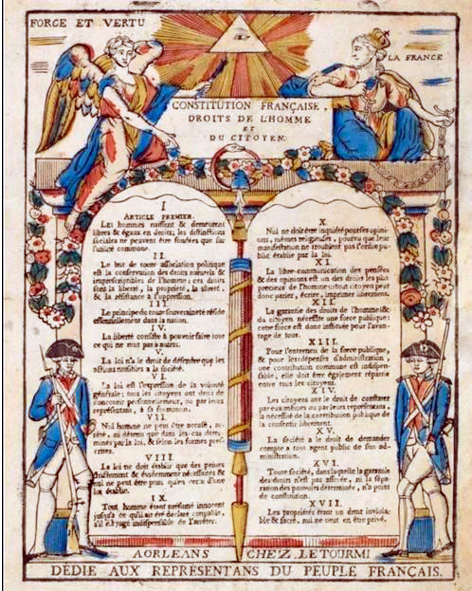 FORCE ET VERTU
LA FRANCE
CONSTITUTION FRANÇAISE,
DROITS DE L'HOMME
ET
DU CITOYEN.
I
ARTICLE PREMIER.
Les hommes naissent & demeurent
libres & égaux en droits; les distinctions
sociales ne peuvent être fondées que sur
l'utilité commune.
II.
Le but de toute association politique
est la conservation des droits naturels &
imprescriptibles de l'homme; ces droits
sont la liberté, la propriété, la sûreté,
& la résistance à l'oppression.
III
Le principe de toute souveraineté réside
essentiellement dans la nation.
IV.
La liberté consiste à pouvoir faire tout
ce qui ne nuit pas à autrui.
V.
La loi n'a le droit de défendre que les
actions nuisibles à la société.
VI.
La loi est l'expression de la volonté
générale; tous les citoyens ont droit de
concourir personnellement, ou par leurs
représentans, à sa formation.
VII.
Nul homme ne peut être accusé, arrêté,
ni détenu que dans les cas déterminés
par la loi, & selon les formes prescrites.
VIII
La loi ne doit établir que des peines
strictement & évidemment nécessaires &
nul ne peut être puni qu'en vertu d'une
loi établie.
IX
Tout homme étant présumé innocent
jusqu'à ce qu'il ait été déclaré coupable,
s'il est jugé indispensable de l'arrêter.
X.
Nul ne doit être inquiété pour ses opinions,
mêmes religieuses, pourvu que leur
manifestation ne trouble pas l'ordre public
établie par la loi.
XI.
La libre communication des pensées
& des opinions est un des droits les plus
précieux de l'homme: tout citoyen peut
donc parler, écrire, imprimer librement.
XII
La garantie des droits de l'homme &
du citoyen nécessite une force publique:
cette force est donc instituée pour l'avantage
de tous.
XIII.
Pour l'entretien de la force publique,
& pour les dépenses d'administration,
une contribution commune est indispensable,
elle doit être également répartie
entre tous les citoyens.
XIV.
Les citoyens ont le droit de constater
par eux mêmes ou par leurs représentans,
la nécessité de la contribution publique de
la consentir librement.
XV.
La société a le droit de demander
compte a tout agent public de son administration.
XVI.
Toute société, dans laquelle la garantie
des droits n'est pas assurée, ni la séparation
des pouvoirs déterminée, n'a point
de constitution.
XVII.
Les propriétés étant un droit inviolable
& sacré, nul ne peut en être privé.
A ORLEANS CHEZ LETOURMI
DÉDIÉ AUX REPRÉSENTANS DU PEUPLE FRANÇAIS.